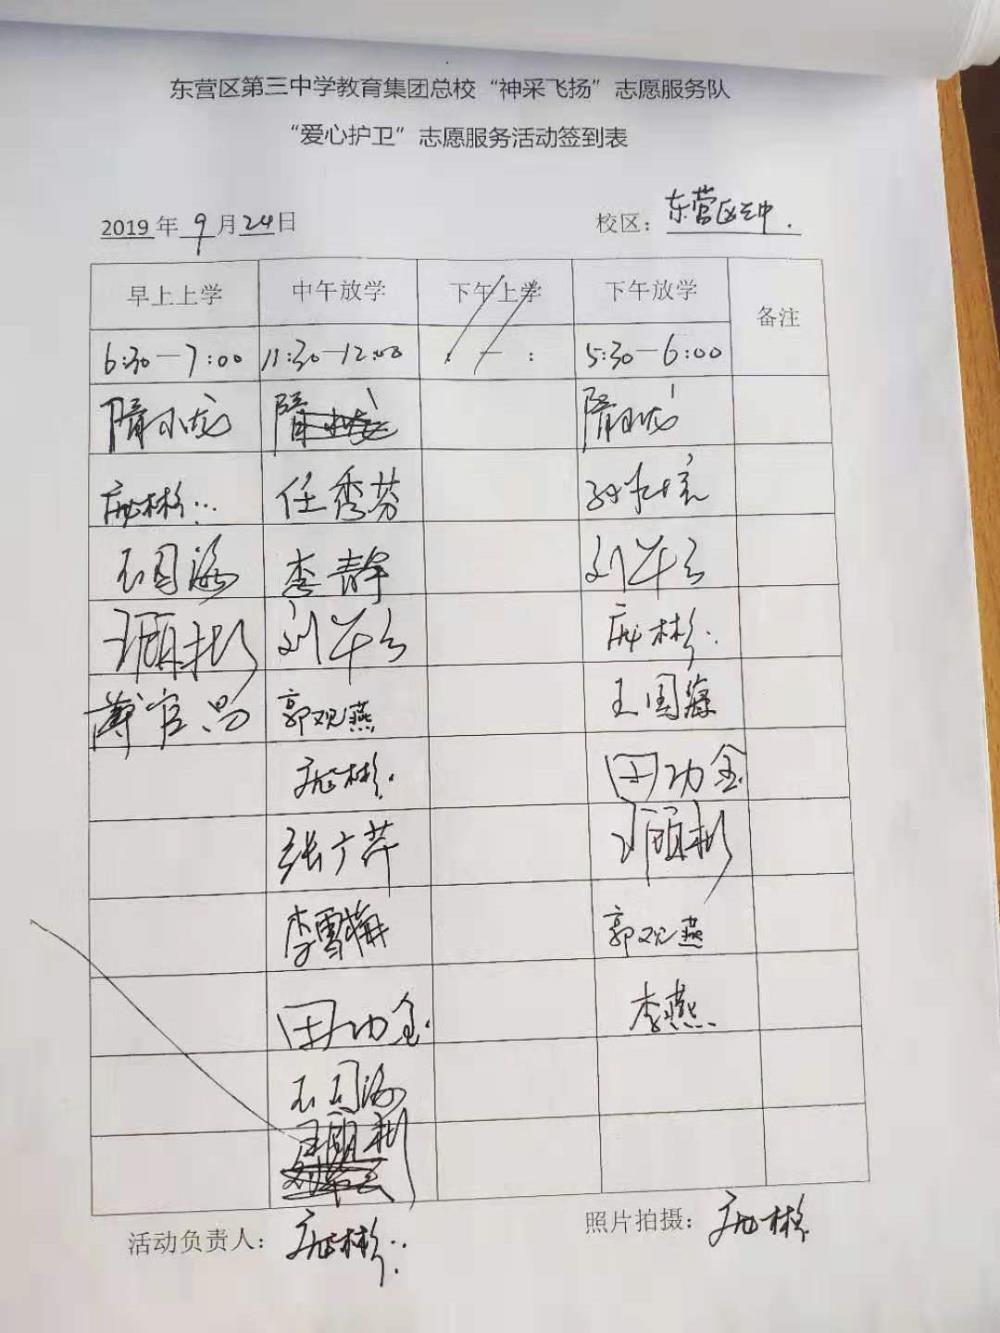 东营区第三中学教育集团总校“神采飞扬”志愿服务队
“爱心护卫”志愿服务活动签到表
2019年9月24日 校区：东营区三中.
早上上学 中午放学 下午上学 下午放学 备注
6:30—7:00 11:30—12:00 : — : 5:30—6:00
隋小龙 隋小龙 隋小龙
庞彬 任秀芬
王国海 李静 刘华云
刘华云 庞彬
薄官昌 郭观燕 王国海
庞彬 田功金
张广芹
李雪梅 郭观燕
田功金 李燕
王国海
活动负责人：庞彬 照片拍摄：庞彬